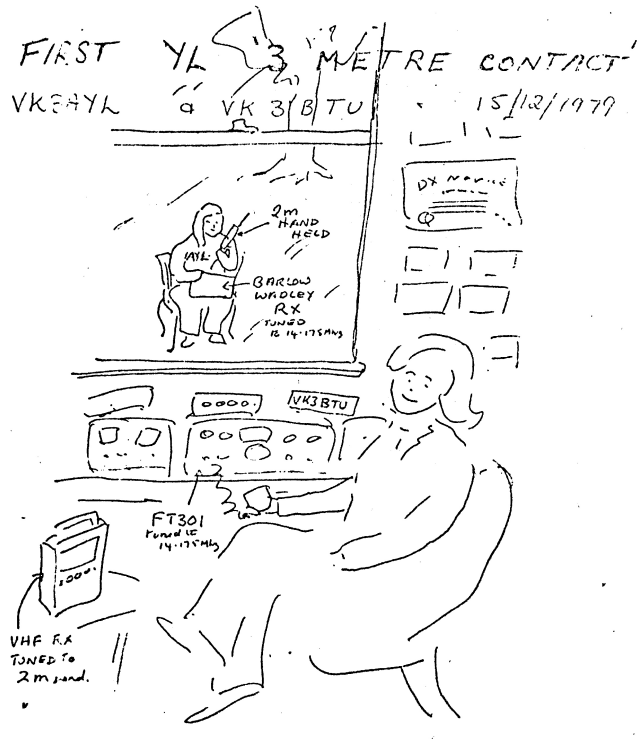 FIRST YL 3 METRE CONTACT
VK3AYL & VK3BTU 15/12/1979
DX NOVICE
2m
HAND
HELD
AYL
BARLOW
WADLEY
RX
TUNED
to 14.175 Mhz
VK3BTU
FT301
tuned to
14.175 Mhz
VHF RX
TUNED TO
2m